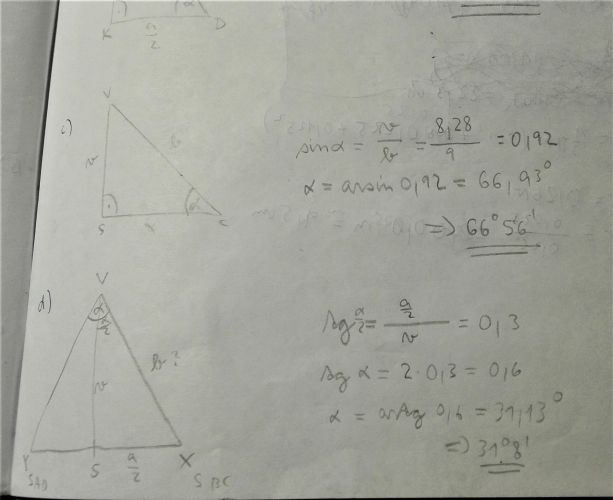 K a/2 D
c)
V
v b
S x C
sinα = v/b = 8,28/9 = 0,92
α = arsin 0,92 = 66,93°
=> 66° 56'
d)
V
α
α/2
v b?
Y S a/2 X
SAD SBC
tg α/2 = a/2 / v = 0,3
tg α = 2·0,3 = 0,6
α = artg 0,6 = 31,13°
=> 31° 8'